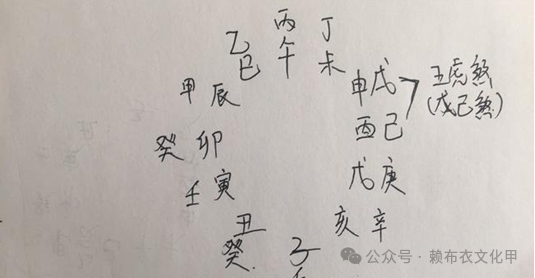 乙 丙 丁
巳 午 未
甲 辰
申 戊
五虎煞
(戊己煞)
酉 己
癸 卯
壬 寅
戌 庚
丑
癸
子
亥 辛
公众号 · 赖布衣文化甲